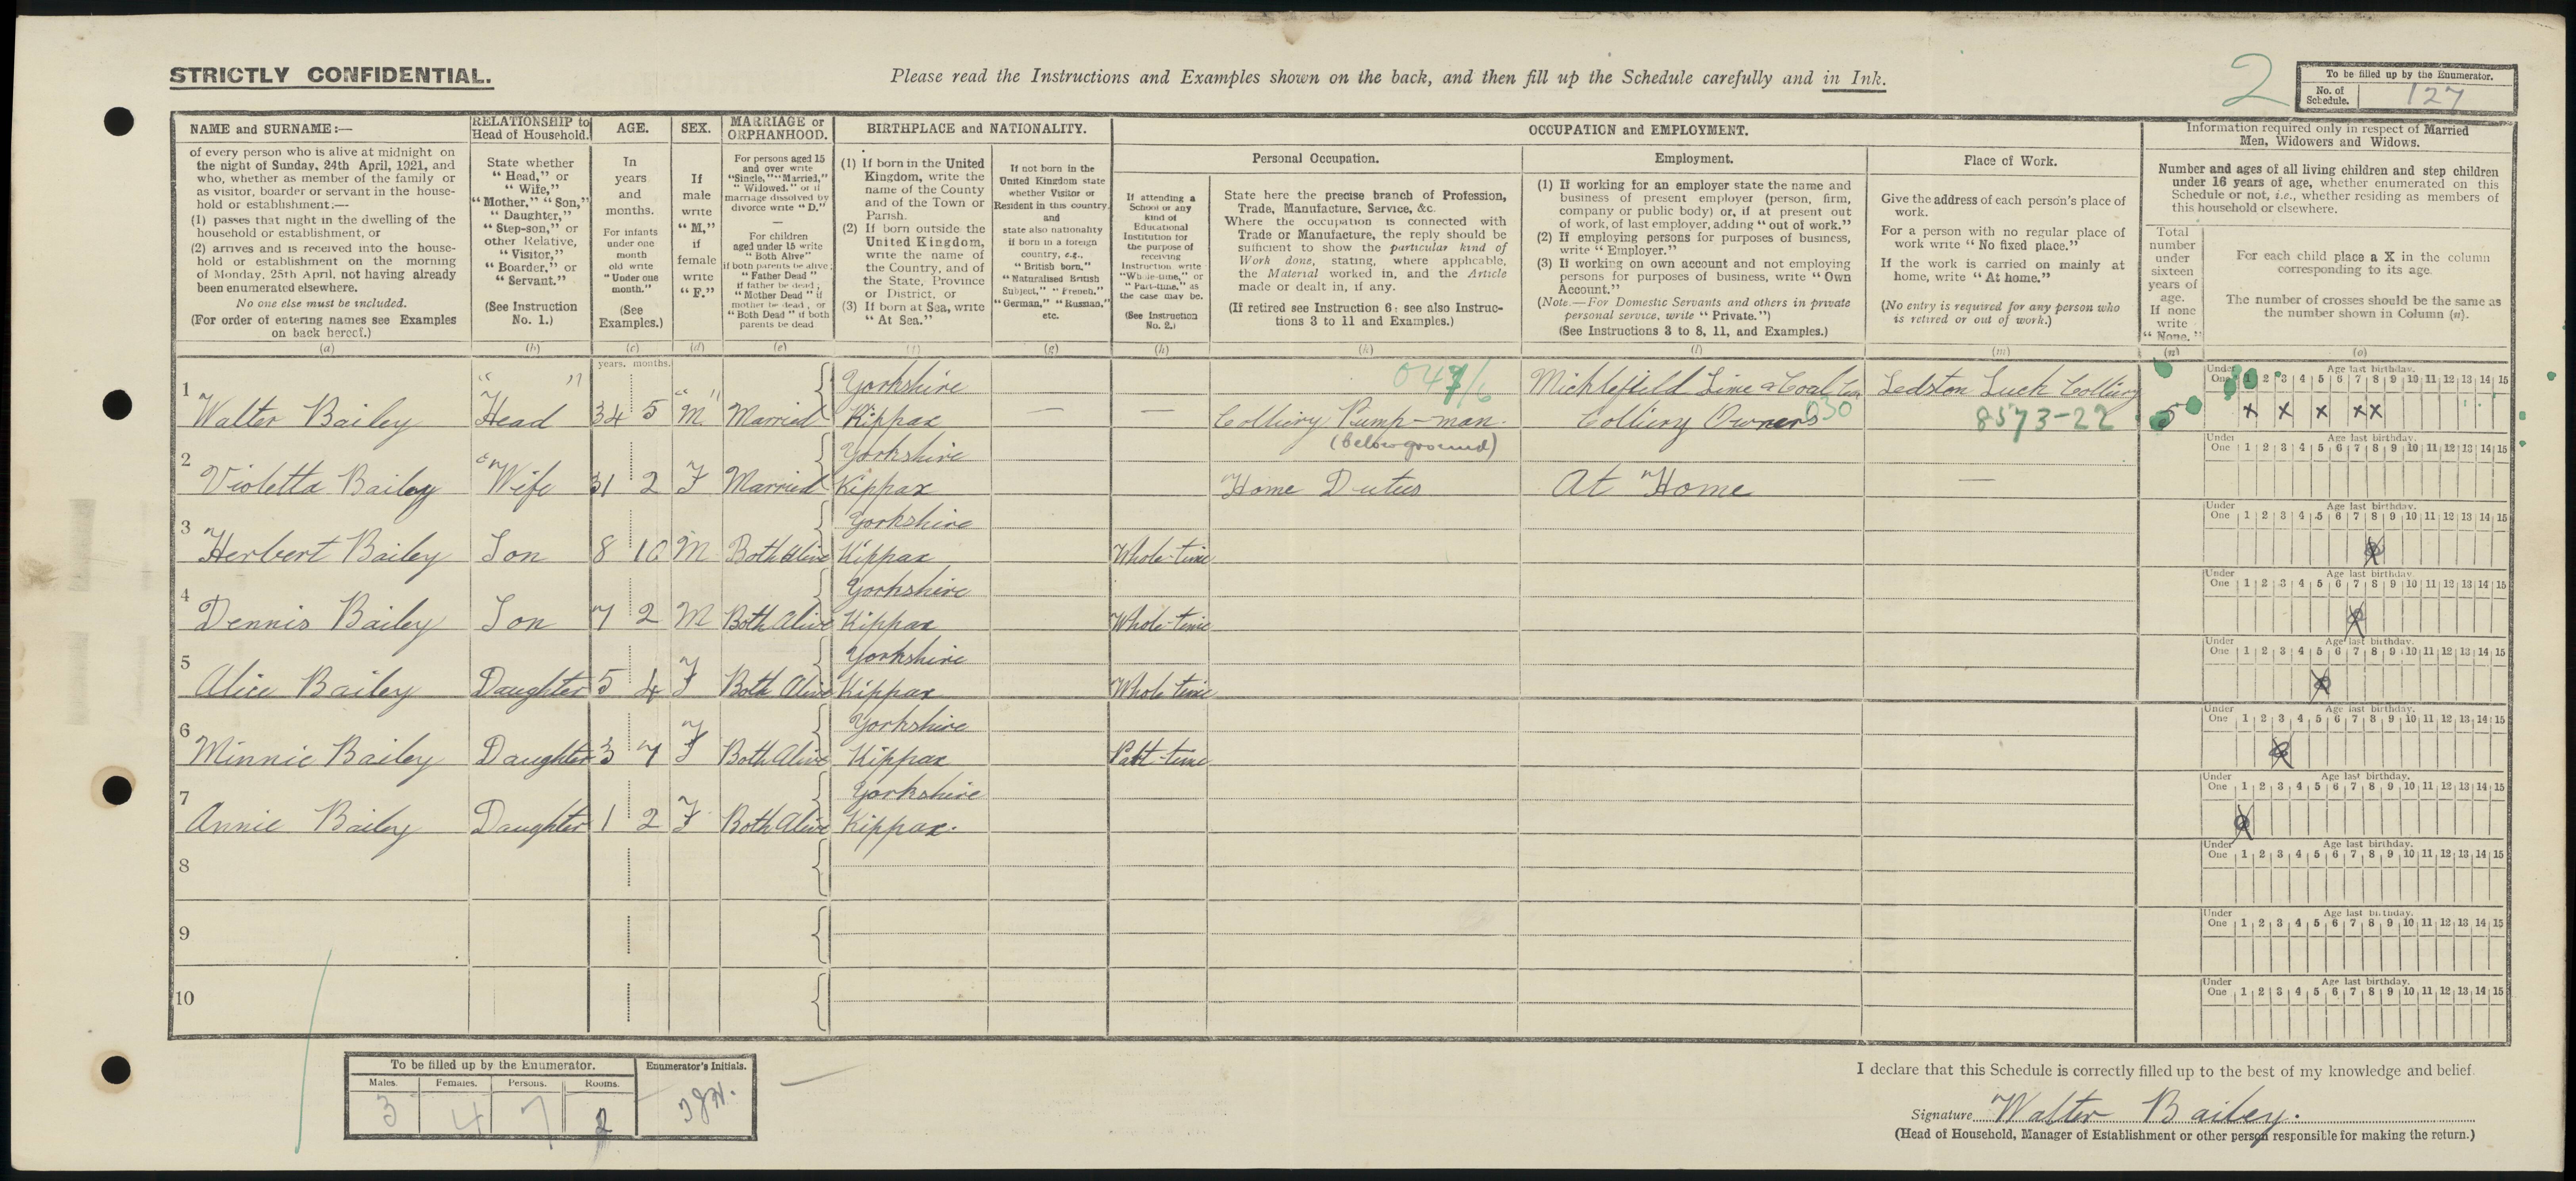 STRICTLY CONFIDENTIAL.
Please read the Instructions and Examples shown on the back, and then fill up the Schedule carefully and in Ink.
2
To be filled up by the Enumerator.
No. of Schedule. 127
NAME and SURNAME:—
of every person who is alive at midnight on
the night of Sunday, 24th April, 1921, and
who, whether as member of the family or
as visitor, boarder or servant in the house-
hold or establishment:—
(1) passes that night in the dwelling of the
household or establishment, or
(2) arrives and is received into the house-
hold or establishment on the morning
of Monday, 25th April, not having already
been enumerated elsewhere.
No one else must be included.
(For order of entering names see Examples
on back hereof.)
(a)
RELATIONSHIP to
Head of Household.
State whether
"Head," or
"Wife,"
"Mother," "Son,"
"Daughter,"
"Step-son," or
other Relative,
"Visitor,"
"Boarder," or
"Servant."
(See Instruction
No. 1.)
(b)
AGE.
In
years
and
months.
For infants
under one
month
old write
"Under one
month."
(See
Examples.)
(c)
years. months.
SEX.
If
male
write
"M,"
if
female
write
"F."
(d)
MARRIAGE or
ORPHANHOOD.
For persons aged 15
and over write
"Single," "Married,"
"Widowed," or if
marriage dissolved by
divorce write "D."
—
For children
aged under 15 write
"Both Alive"
if both parents be alive;
"Father Dead"
if father be dead;
"Mother Dead" if
mother be dead, or
"Both Dead" if both
parents be dead
(e)
BIRTHPLACE and NATIONALITY.
(1) If born in the United
Kingdom, write the
name of the County
and of the Town or
Parish.
(2) If born outside the
United Kingdom,
write the name of
the Country, and of
the State, Province
or District, or
(3) If born at Sea, write
"At Sea."
(f)
If not born in the
United Kingdom state
whether Visitor or
Resident in this country
and
state also nationality
if born in a foreign
country, e.g.,
"British born,"
"Naturalised British
Subject," "French,"
"German," "Russian,"
etc.
(g)
OCCUPATION and EMPLOYMENT.
Personal Occupation.
If attending a
School or any
kind of
Educational
Institution for
the purpose of
receiving
Instruction, write
"Whole-time," or
"Part-time," as
the case may be.
(See Instruction
No. 2.)
(h)
State here the precise branch of Profession,
Trade, Manufacture, Service, &c.
Where the occupation is connected with
Trade or Manufacture, the reply should be
sufficient to show the particular kind of
Work done, stating, where applicable,
the Material worked in, and the Article
made or dealt in, if any.
(If retired see Instruction 6; see also Instruc-
tions 3 to 11 and Examples.)
(k)
Employment.
(1) If working for an employer state the name and
business of present employer (person, firm,
company or public body) or, if at present out
of work, of last employer, adding "out of work."
(2) If employing persons for purposes of business,
write "Employer."
(3) If working on own account and not employing
persons for purposes of business, write "Own
Account."
(Note.—For Domestic Servants and others in private
personal service, write "Private.")
(See Instructions 3 to 8, 11, and Examples.)
(l)
Place of Work.
Give the address of each person's place of
work.
For a person with no regular place of
work write "No fixed place."
If the work is carried on mainly at
home, write "At home."
(No entry is required for any person who
is retired or out of work.)
(m)
Information required only in respect of Married
Men, Widowers and Widows.
Number and ages of all living children and step children
under 16 years of age, whether enumerated on this
Schedule or not, i.e., whether residing as members of
this household or elsewhere.
Total
number
under
sixteen
years of
age.
If none
write
"None."
(n)
For each child place a X in the column
corresponding to its age.
The number of crosses should be the same as
the number shown in Column (n).
(o)
1 Walter Bailey Head 34 5 M. Married Yorkshire Kippax — —
047/6
Colliery Pump-man.
(below ground)
Micklefield Lime & Coal
Colliery Owners
030
Ledston Luck Colliery
8573-22
5 x x x x x
Under One Age last birthday. 1 2 3 4 5 6 7 8 9 10 11 12 13 14 15
2 Violetta Bailey Wife 31 2 F Married Yorkshire Kippax Home Duties At Home —
Under One Age last birthday. 1 2 3 4 5 6 7 8 9 10 11 12 13 14 15
3 Herbert Bailey Son 8 10 M Both Alive Yorkshire Kippax Whole-time x
Under One Age last birthday. 1 2 3 4 5 6 7 8 9 10 11 12 13 14 15
4 Dennis Bailey Son 7 2 M Both Alive Yorkshire Kippax Whole-time x
Under One Age last birthday. 1 2 3 4 5 6 7 8 9 10 11 12 13 14 15
5 Alice Bailey Daughter 5 4 F Both Alive Yorkshire Kippax Whole time x
Under One Age last birthday. 1 2 3 4 5 6 7 8 9 10 11 12 13 14 15
6 Minnie Bailey Daughter 3 7 F Both Alive Yorkshire Kippax Part-time x
Under One Age last birthday. 1 2 3 4 5 6 7 8 9 10 11 12 13 14 15
7 Annie Bailey Daughter 1 2 F Both Alive Yorkshire Kippax. x
Under One Age last birthday. 1 2 3 4 5 6 7 8 9 10 11 12 13 14 15
8
Under One Age last birthday. 1 2 3 4 5 6 7 8 9 10 11 12 13 14 15
9
Under One Age last birthday. 1 2 3 4 5 6 7 8 9 10 11 12 13 14 15
10
Under One Age last birthday. 1 2 3 4 5 6 7 8 9 10 11 12 13 14 15
To be filled up by the Enumerator.
Males. Females. Persons. Rooms.
3 4 7
Enumerator's Initials.
I declare that this Schedule is correctly filled up to the best of my knowledge and belief.
Signature Walter Bailey.
(Head of Household, Manager of Establishment or other person responsible for making the return.)